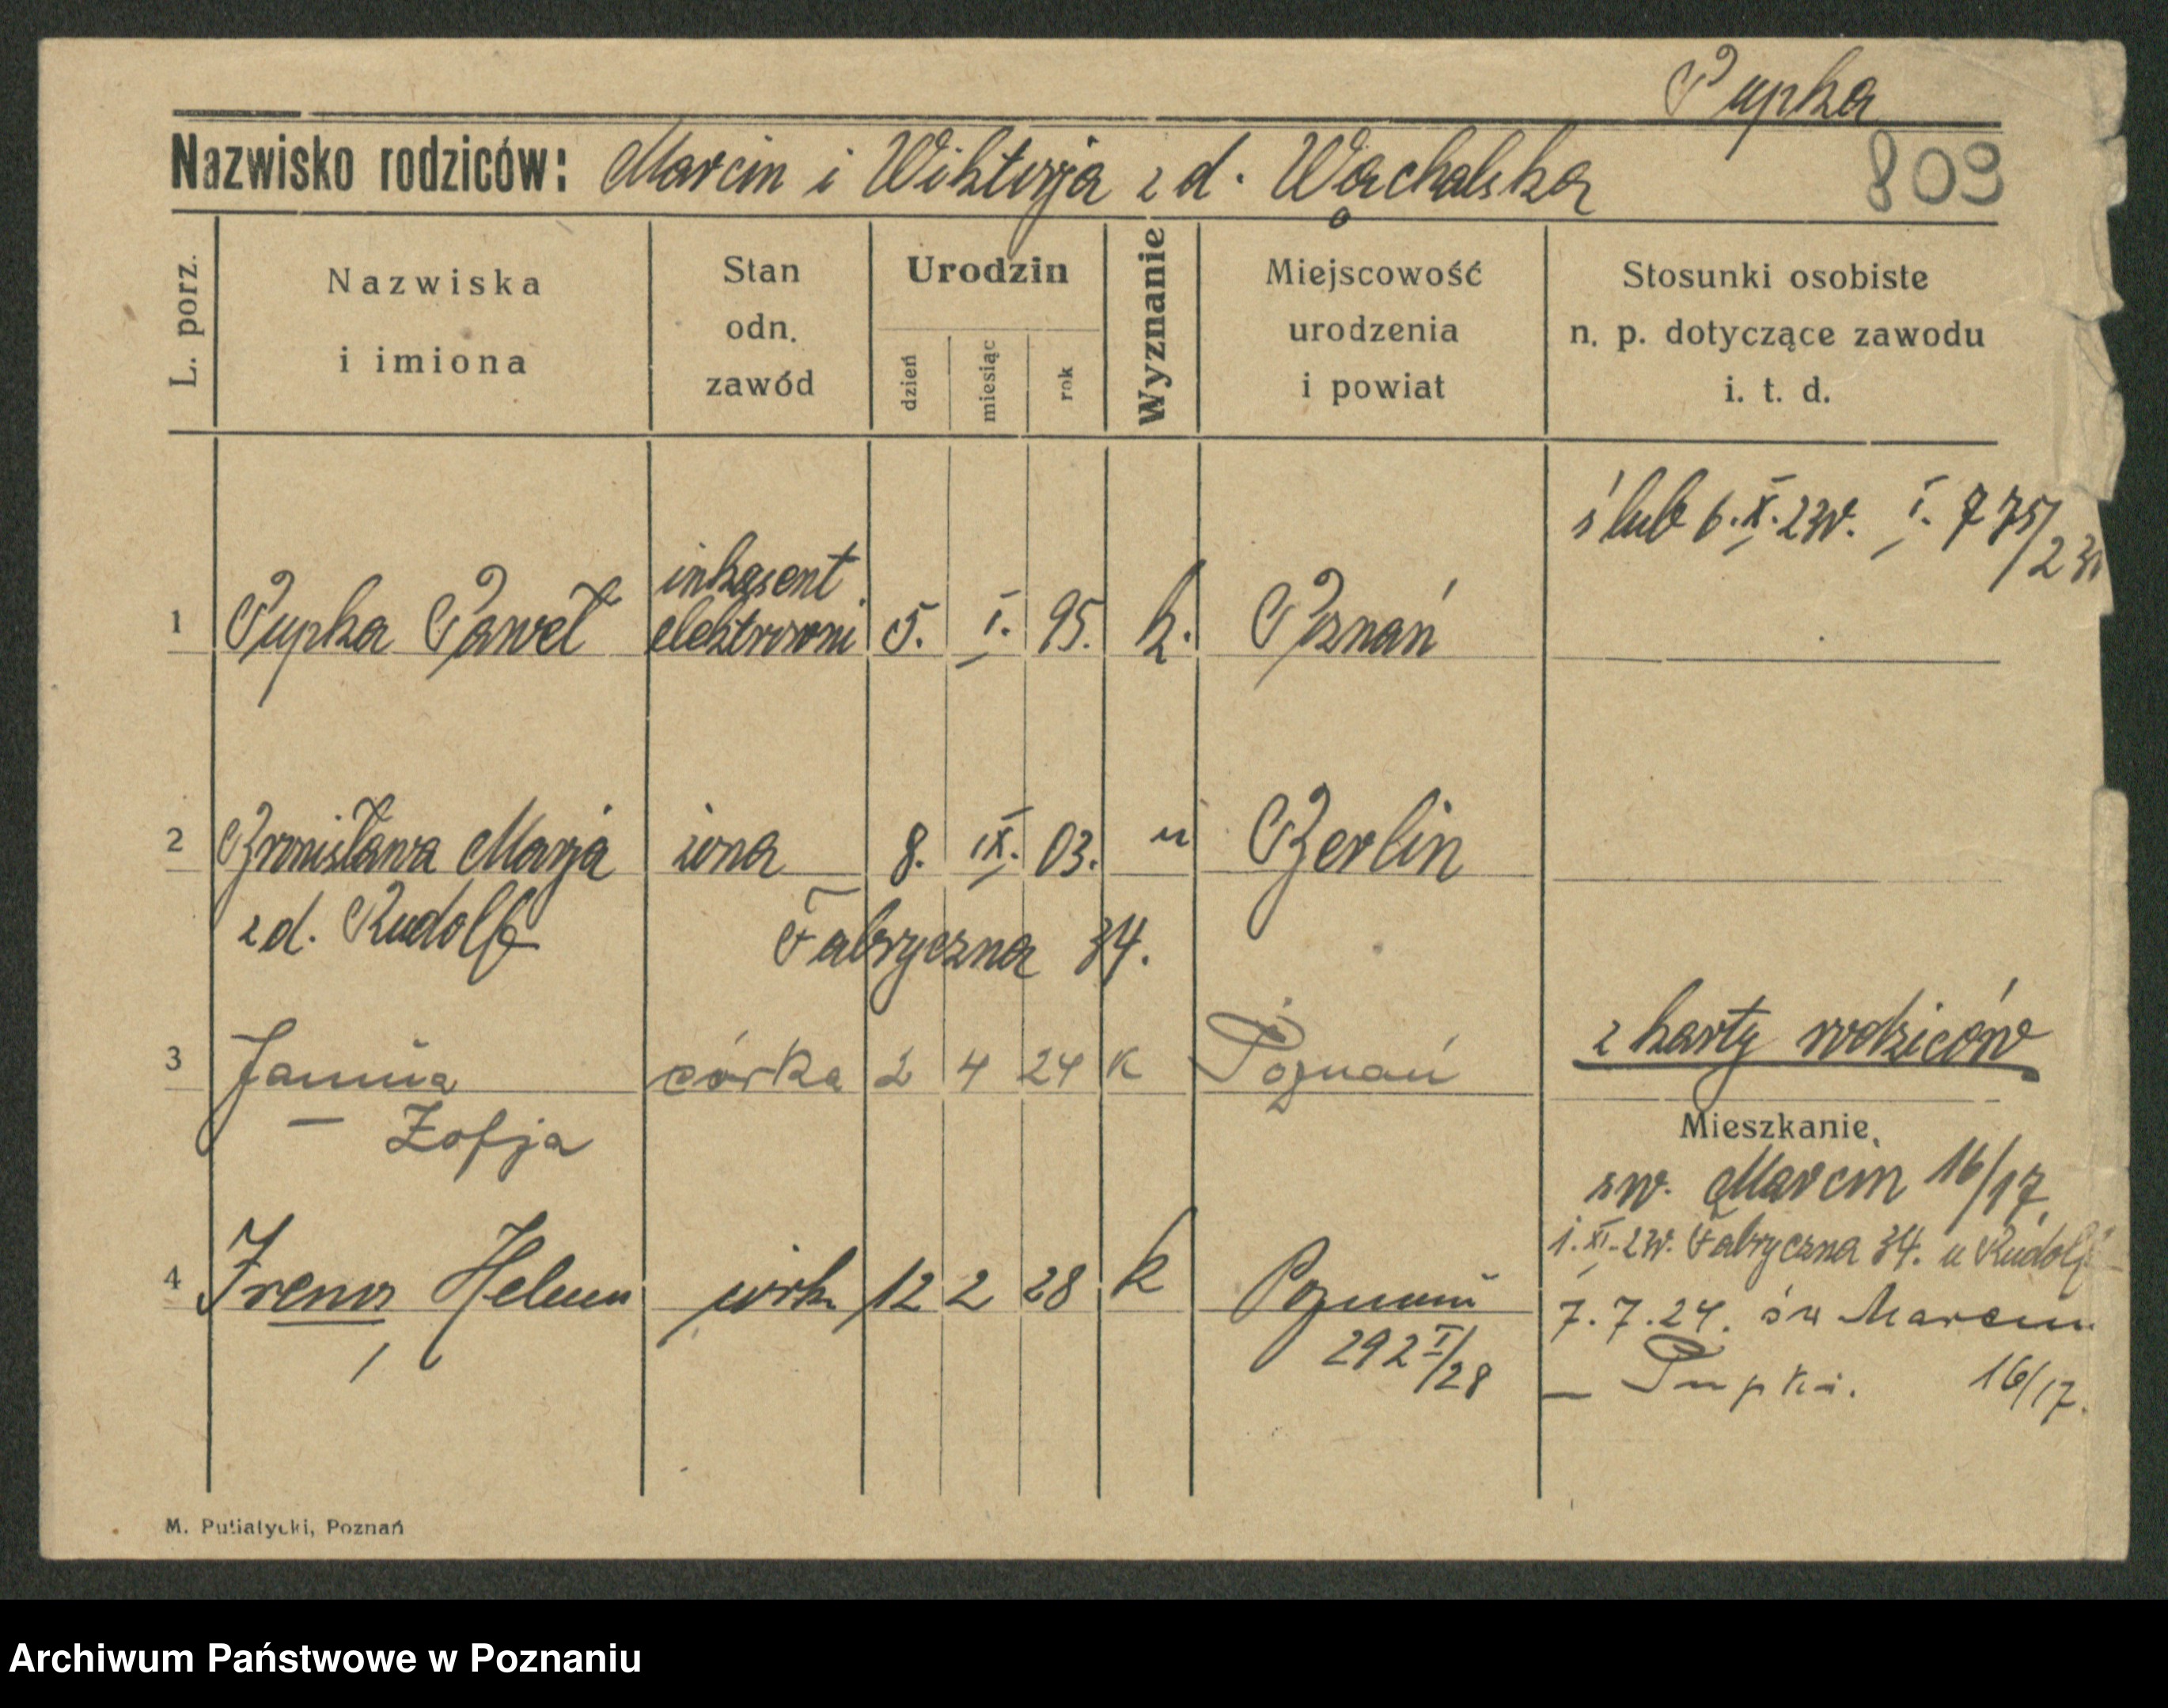 Pupka
Nazwisko rodziców: Marcin i Wiktorja z d. Wąchalska
809
L. porz.
Nazwiska
i imiona
Stan
odn.
zawód
Urodzin
dzień
miesiąc
rok
Wyznanie
Miejscowość
urodzenia
i powiat
Stosunki osobiste
n. p. dotyczące zawodu
i. t. d.
ślub 6.X.23r. I. 775/23
inkasent
1 Pupka Paweł elektrowni 5. I. 95. k. Poznań
2 Bronisława Marja żona 8. IX. 03. " Berlin
z d. Rudolf Fabryczna 34.
z karty rodziców
3 Janina córka 2 4 24 K Poznań
— Zofja
Mieszkanie.
św. Marcin 16/17
1.XI.23r. Fabryczna 34. u Rudolf
4 Irena Helena córk. 12 2 28 k Poznań
292 I/28
7.7.24. św Marcin
— Pupka. 16/17.
M. Putiatycki, Poznań
Archiwum Państwowe w Poznaniu